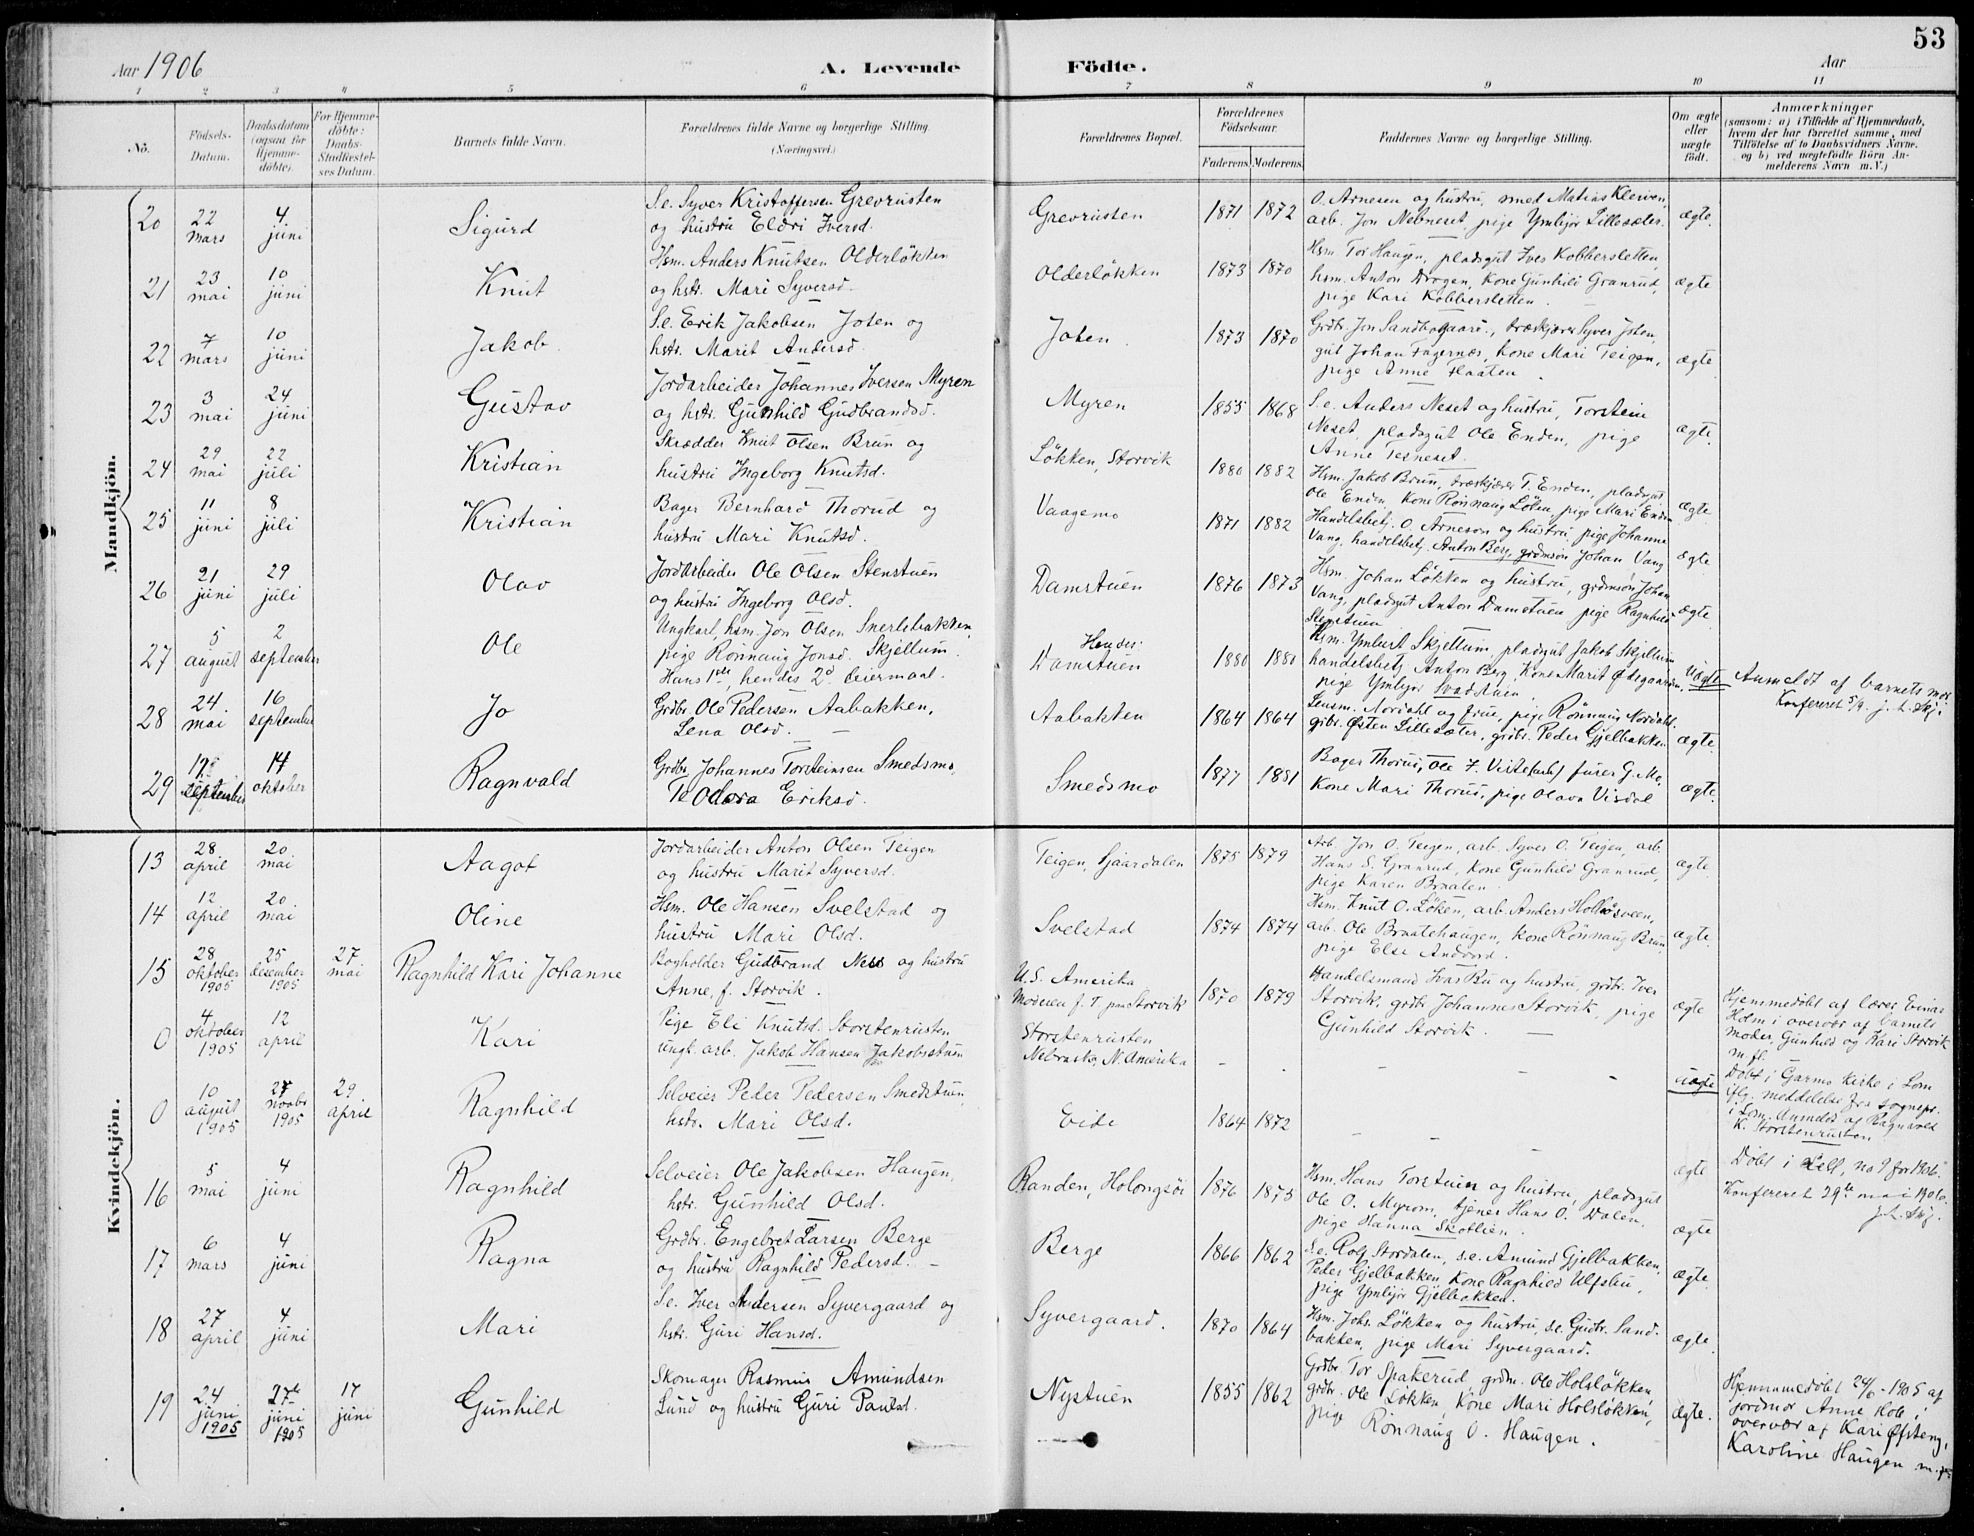 53
Aar 1906
A. Levende Födte.
Aar
1 2 3 4 5 6 7 8 9 10 11
Nô.
Födsels-Datum.
Daabsdatum (ogsaa for Hjemme-döbte).
For Hjemme-döbte: Daabs-Stadfæstel-ses Datum.
Barnets fulde Navn.
Forældrenes fulde Navne og borgerlige Stilling. (Næringsvei.)
Forældrenes Bopæl.
Forældrenes Födselsaar.
Faderens. Moderens.
Faddernes Navne og borgerlige Stilling.
Om ægte eller uægte födt.
Anmærkninger
(saasom: a) i Tilfælde af Hjemmedaab,
hvem der har forrettet samme, med
Tilföielse af to Daabsvidners Navne.
og b) ved uægtefödte Börn An-
melderens Navn m. V.)
Mandkjön.
20 22 mars 4. juni Sigurd
S.e. Syver Kristoffersen Grevrusten
og hustru Eldri Iversd.
Grevrusten 1871 1872
O. Arnesen og hustru, smed Matias Kleiven,
arb. Jon Nebneset, pige Ymbjør Lillesæter. ægte.
21 23 mai 10 juni Knut
Hsm. Anders Knutsen Olderløkken
og hstr. Mari Syversd.
Olderløkken 1873 1870
Hsm Tor Haugen, pladsgut Iver Kobbersletten,
hsm. Anton Drogen, Kone Gunhild Granrud,
pige Kari Kobbersletten. ægte
22 7 mars 10 juni Jakob.
S.e. Erik Jakobsen Joten og
hstr. Marit Andersd.
Joten. 1873 1870
Grdbr. Jon Sandbogaard, træskjærer Syver Joten,
gut Johan Fagernæs, Kone Mari Teigen,
pige Anne Flaaten. ægte
23 3 mai 24 juni Gustav
Jordarbeider Johannes Iversen Myren
og hstr. Gunhild Gudbrandsd.
Myren 1855 1868
S.e. Anders Neset og hustru, Torstein
Neset, pladsgut Ole Enden, pige
Anne Tesneset. ægte.
24 29 mai 22 juli Kristian
Skrædder Knut Olsen Brun og
hustru Ingeborg Knutsd.
Løkken, Storvik 1880 1882
Hsm. Jakob Brun, træskjærer T. Enden, pladsgut
Ole Enden Kone Rønnaug Løken, pige Mari Enden ægte
25 11 juni 8 juli Kristian
Bager Bernhard Thorud og
hustru Mari Knutsd.
Vaagemo 1871 1882
Handelsbetj. O. Arneson og hustru, pige Johanne
Vang, handelsbetj. Anton Berg, grdmsøn Johan Vang ægte
26 21 juni 29 juli Olav
Jordarbeider Ole Olsen Stenstuen
og hustru Ingeborg Olsd.
Damstuen 1876 1873
Hsm. Johan Løkken og hustru, grdmsøn Johan
Vang, pladsgut Anton Damstuen pige Ragnhild
Stenstuen ægte
27 5 august 2 september Ole
Ungkarl, hsm. Jon Olsen Snerlebakken,
pige Rønnaug Jonsd. Skjellum.
Hans 1ste, hendes 2d leiermaal.
Hendes:
Damstuen 1880 1880
Hsm. Ymbert Skjellum, pladsgut Jakob Skjellum
handelsbetj. Anton Berg, Kone Marit Ødegaarden,
pige Ymbjør Svadstuen. Uægte
Anmeldt af barnets mor
Konfereret 5/9. J. L. Skj.
28 24 mai 16 september Jo
Grdbr. Ole Pedersen Aabakken,
Lena Olsd.
Aabakken 1864 1864
Lensm. Nordahl og frue, pige Rønnaug Nordahl,
grbr. Østen Lillesæter, grdbr. Peder Gjelbakken ægte
29 19 september 14 oktober Ragnvald
Grdbr. Johannes Torsteinsen Smedsmo,
Teodora Eriksd.
Smedsmo 1877 1881
Bager Thorud, Ole F. furer G. Mo,
Kone Mari Thorud, pige Olava Visdal ægte.
Kvindekjön.
13 28 april 20 mai Aagot
Jordarbeider Anton Olsen Teigen
og hustru Marit Syversd.
Teigen, Sjaardalen 1875 1879
Arb. Jon O. Teigen, arb. Syver O. Teigen, arb.
Hans S. Granrud, Kone Gunhild Granrud,
pige Karen Braaten. ægte
14 12 april 20 mai Oline
Hsm. Ole Hansen Svelstad og
hustru Mari Olsd.
Svelstad 1874 1874
Hsm. Knut O. Løken, arb. Anders Hollasveen,
arb. Ole Braatehaugen, Kone Rønnaug Brun,
pige Else Andvord. ægte.
15 28 oktober 1905 25 desember 1905 27 mai Ragnhild Kari Johanne
Bogholder Gudbrand Ness og hustru
Anne, f. Storvik.
U.S. Amerika
Moderen f. T. paa Storvik 1870 1879
Handelsmand Ivar Bu og hustru, grdbr. Iver
Storvik, grdbr Johannes Storvik, pige
Gunhild Storvik. ægte
Hjemmedøbt af lærer Einar
Holm i overvær af barnets
moder, Gunhild og Kari Storvik
m. fl.
0 4 oktober 1905 12 april Kari
Pige Eli Knutsd. Storstenrusten
ungk. arb. Jakob Hansen Jakobsstuen
Storstenrusten
Nebraska, N. Amerika uægte
Døbt i Garmo Kirke i Lom
iflg. meddelelse fra sognepr.
i Lom. Anmeldt af Ragnvald
K. Storstenrusten
0 10 august 1905 27 novbr 1905 29 april Ragnhild
Selveier Peder Pedersen Smedstuen,
hstr. Mari Olsd.
Eide 1864 1872 ægte
Døbt i Sell, no 9 for 1906
16 5 mai 4 juni Ragnhild
Selveier Ole Jakobsen Haugen,
hstr. Gunhild Olsd.
Randen, Holongsøi 1876 1875
Hsm. Hans Torstuen og hustru, pladsgut
Ole O. Myrom, tjener Hans O. Dalen,
pige Hanna Skotlien. ægte
Konfereret 29de mai 1906.
J. L. Skj.
17 6 mars 4 juni Ragna
Grdbr. Engebret Larsen Berge
og hustru Ragnhild Pedersd.
Berge 1866 1862
S.e. Rolf Stordalen, s.e. Amund Gjelbakken,
Peder Gjelbakken, Kone Ragnhild Ulfsbu,
pige Ymbjør Gjelbakken. ægte.
18 27 april 4 juni Mari
S.e. Iver Andersen Syvergaard og
hstr. Guri Hansd.
Syvergaard. 1870 1864
Hsm. Johs. Løkken og hustru, s.e. Gudbr. Sand-
bakken, pige Mari Syvergaard. ægte.
19 24 juni 1905 27de juni 1905 17 juni Gunhild
Skomager Rasmus Amundsen
Lund og hustru Guri Paulsd.
Nystuen 1855 1862
Grdbr. Tor Spakerud, grdm. Ole Holsløkken,
grdbr. Ole Løkken, Kone Mari Holsløkken,
pige Rønnaug O. Haugen. ægte.
Hjemmedøbt 24/6 - 1905 af
jordmor Anne Hole i
overvær af Kari Øfsteng,
Karoline Haugen m. fl.